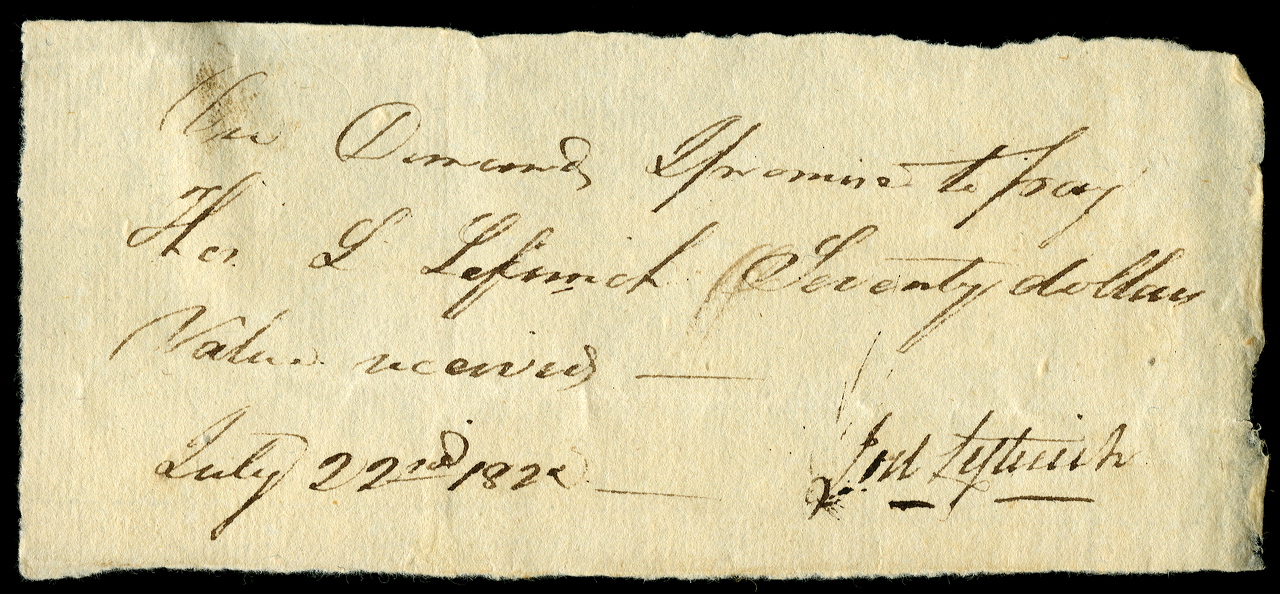 On Demand I promise to pay
L Seventy dollars
Value received —
July 22nd 182 —
Joel Leftwich